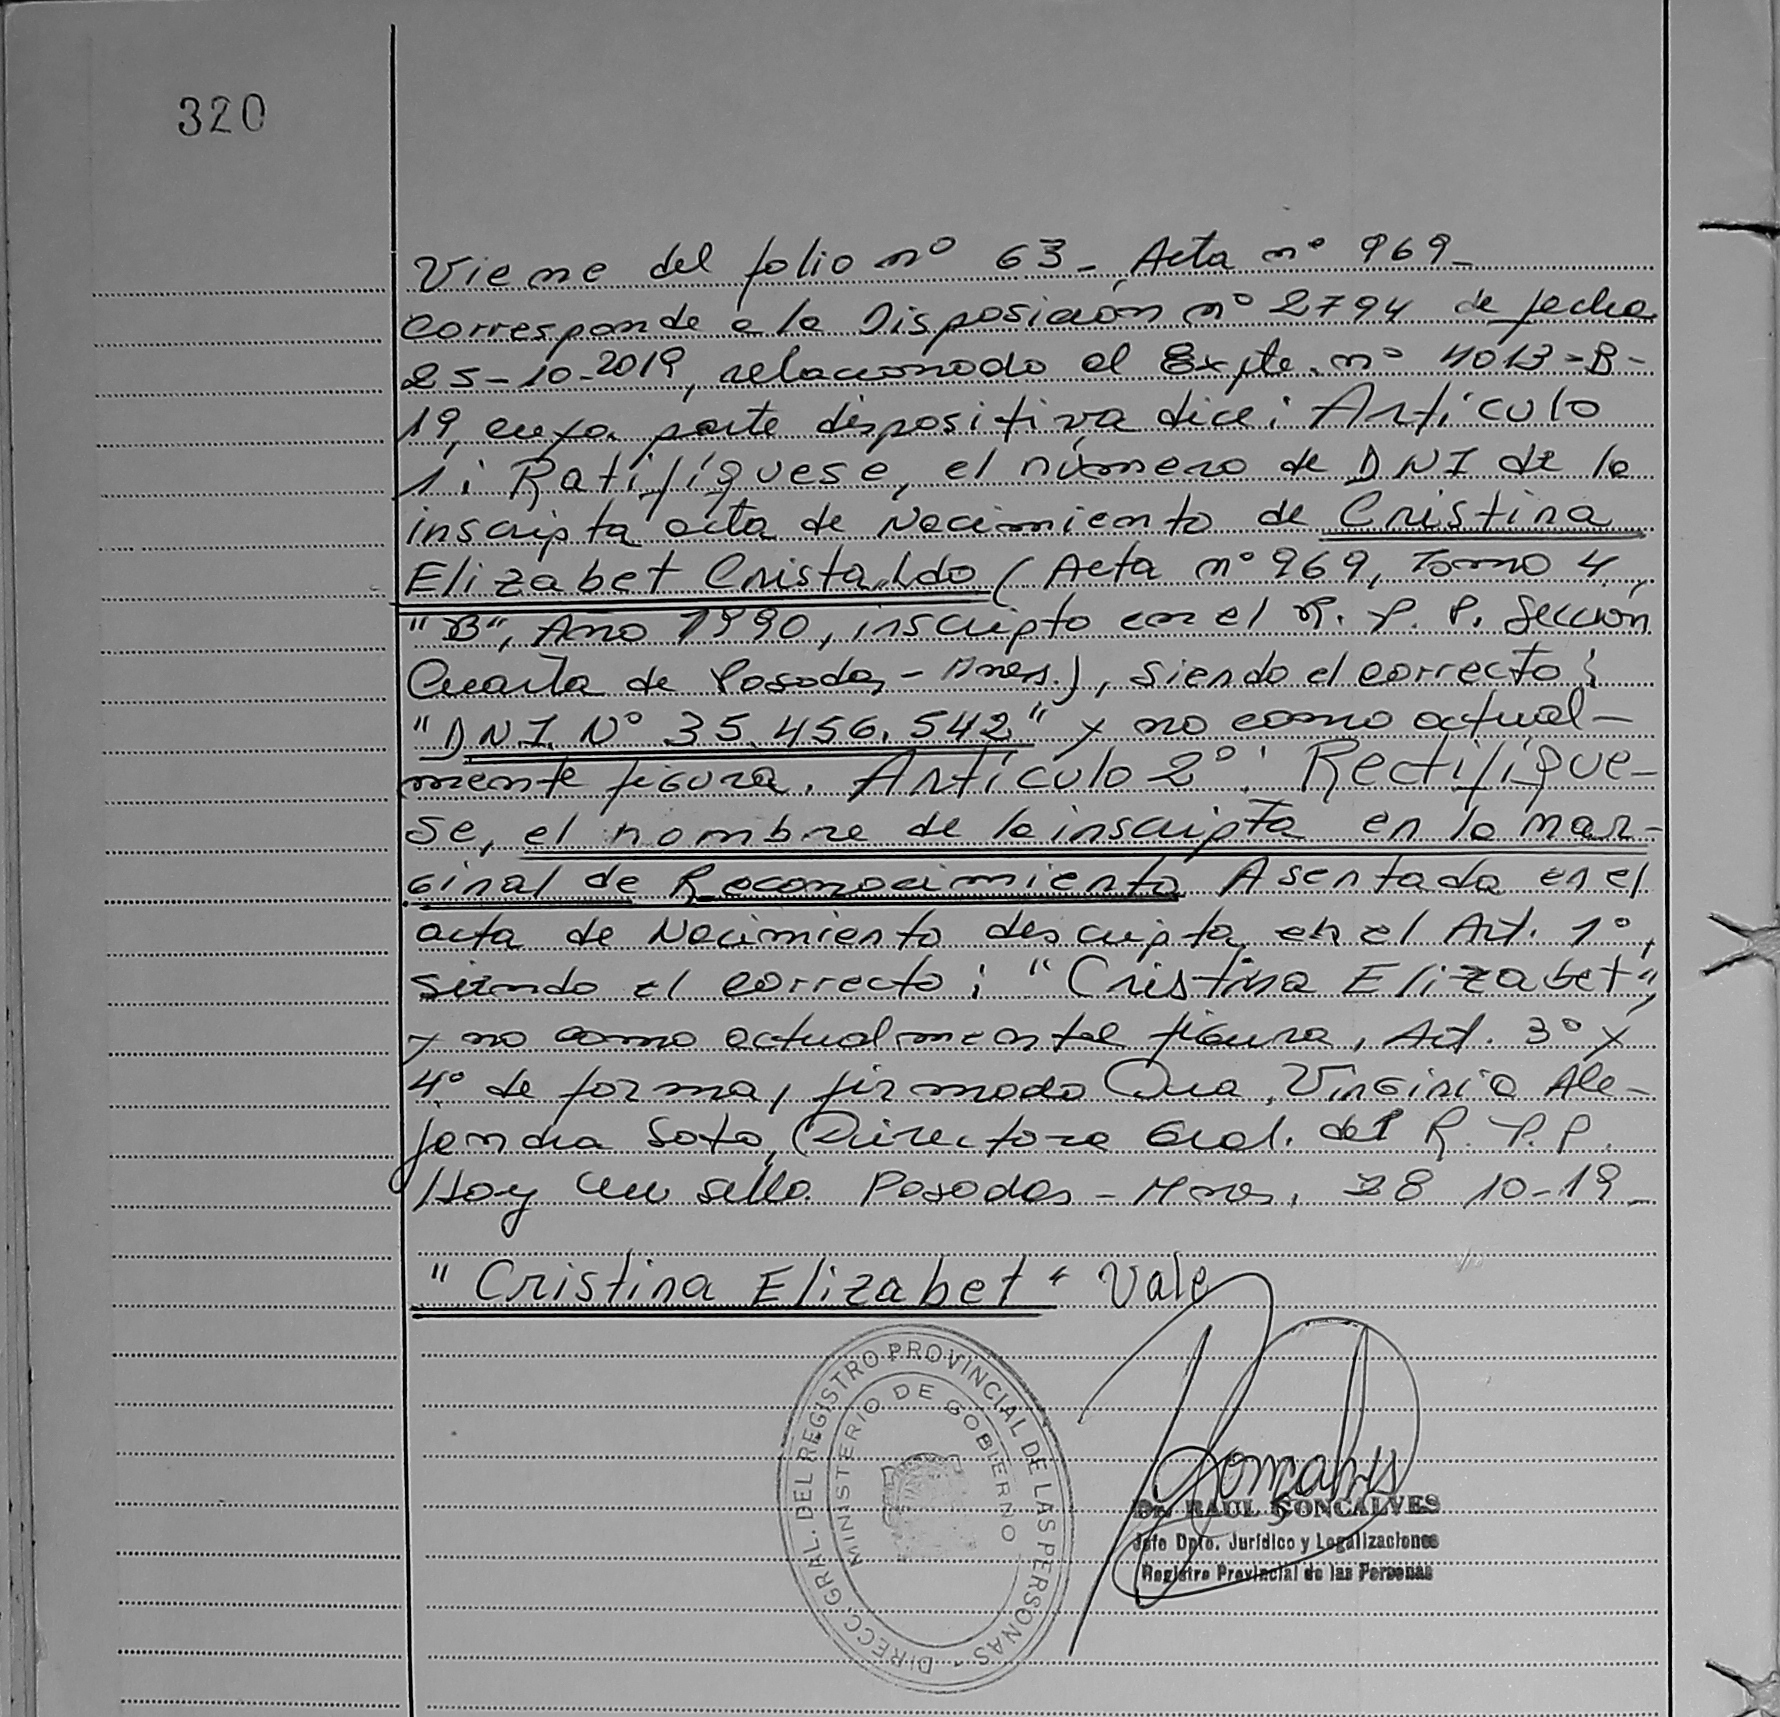 320
Viene del folio nº 63 - Acta nº 969 -
Corresponde a la Disposición nº 2794 de fecha
25-10-2019, relacionado al Expte. nº 4013-B-
19, cuya parte dispositiva dice: Artículo
1: Ratifíquese, el número de DNI de la
inscripta acta de Nacimiento de Cristina
Elizabet Cristaldo (Acta nº 969, Tomo 4,
"B", Año 1990, inscripto en el R. P. P. Sección
Cuarta de Posadas - Mnes.), siendo el correcto:
"DNI Nº 35.456.542" y no como actual-
mente figura. Artículo 2º: Rectifíque-
se, el nombre de la inscripta en la mar-
ginal de Reconocimiento Asentada en el
acta de Nacimiento descripta en el Art. 1º,
siendo el correcto: "Cristina Elizabet",
y no como actualmente figura, Art. 3º y
4º de forma, firmado Dra. Virginia Ale-
jandra Soto, Directora Gral. del R. P. P.
Hay un sello. Posadas - Mnes, 28 10-19 -
"Cristina Elizabet" Vale
DIRECC. GRAL. DEL REGISTRO PROVINCIAL DE LAS PERSONAS -
MINISTERIO DE GOBIERNO
Dr. RAUL GONCALVES
Jefe Dpto. Jurídico y Legalizaciones
Registro Provincial de las Personas